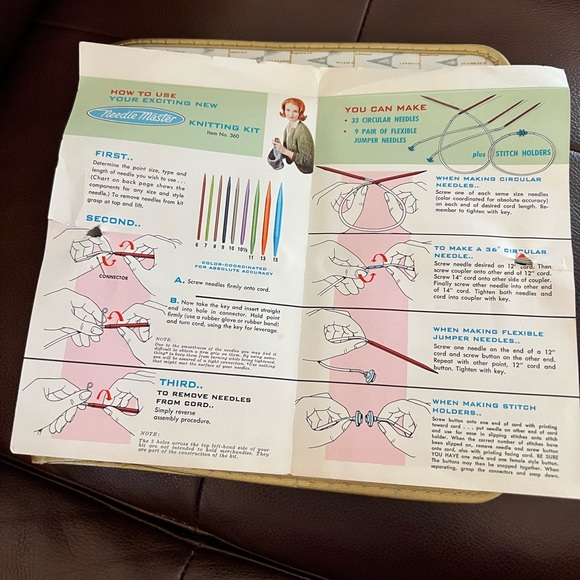 HOW TO USE
YOUR EXCITING NEW
Needle Master
KNITTING KIT
Item No. 360
FIRST..
Determine the point size, type and
length of needle you wish to use...
(Chart on back page shows the
components for any size and style
needle.) To remove needles from kit
grasp at top and lift.
6 7 8 9 10 10½ 11 13 15
COLOR-COORDINATED
FOR ABSOLUTE ACCURACY
SECOND..
CONNECTOR
A. Screw needles firmly onto cord.
B. Now take the key and insert straight
end into hole in connector. Hold point
firmly (use a rubber glove or rubber band)
and turn cord, using the key for leverage.
NOTE:
Due to the smoothness of the needles you may find it
difficult to obtain a firm grip on them. By using some-
thing* to keep them from turning while being tightened,
you will be assured of a tight connection. *Use nothing
that might mar the surface of your needles.
THIRD..
TO REMOVE NEEDLES
FROM CORD..
Simply reverse
assembly procedure.
NOTE:
The 3 holes across the top left-hand side of your
kit are not intended to hold merchandise. They
are part of the construction of the kit.
YOU CAN MAKE
• 33 CIRCULAR NEEDLES
• 9 PAIR OF FLEXIBLE
JUMPER NEEDLES
plus STITCH HOLDERS
WHEN MAKING CIRCULAR
NEEDLES..
Screw one of each same size needles
(color coordinated for absolute accuracy)
on each end of desired cord length. Re-
member to tighten with key.
TO MAKE A 36" CIRCULAR
NEEDLE..
Screw needle desired on 12" cord. Then
screw coupler onto other end of 12" cord.
Screw 14" cord onto other side of coupler.
Finally screw other needle into other end
of 14" cord. Tighten both needles and
cord into coupler with key.
WHEN MAKING FLEXIBLE
JUMPER NEEDLES..
Screw one needle on the end of a 12"
cord and screw button on the other end.
Repeat with other point, 12" cord and
button. Tighten with key.
WHEN MAKING STITCH
HOLDERS..
Screw button onto one end of cord with printing
toward cord ... put needle on other end of cord
and use for ease in slipping stitches onto stitch
holder. When the correct number of stitches have
been slipped on, remove needle and screw button
onto cord, also with printing facing cord. BE SURE
YOU HAVE one male and one female style button.
The buttons may then be snapped together. When
separating, grasp the connectors and snap down.